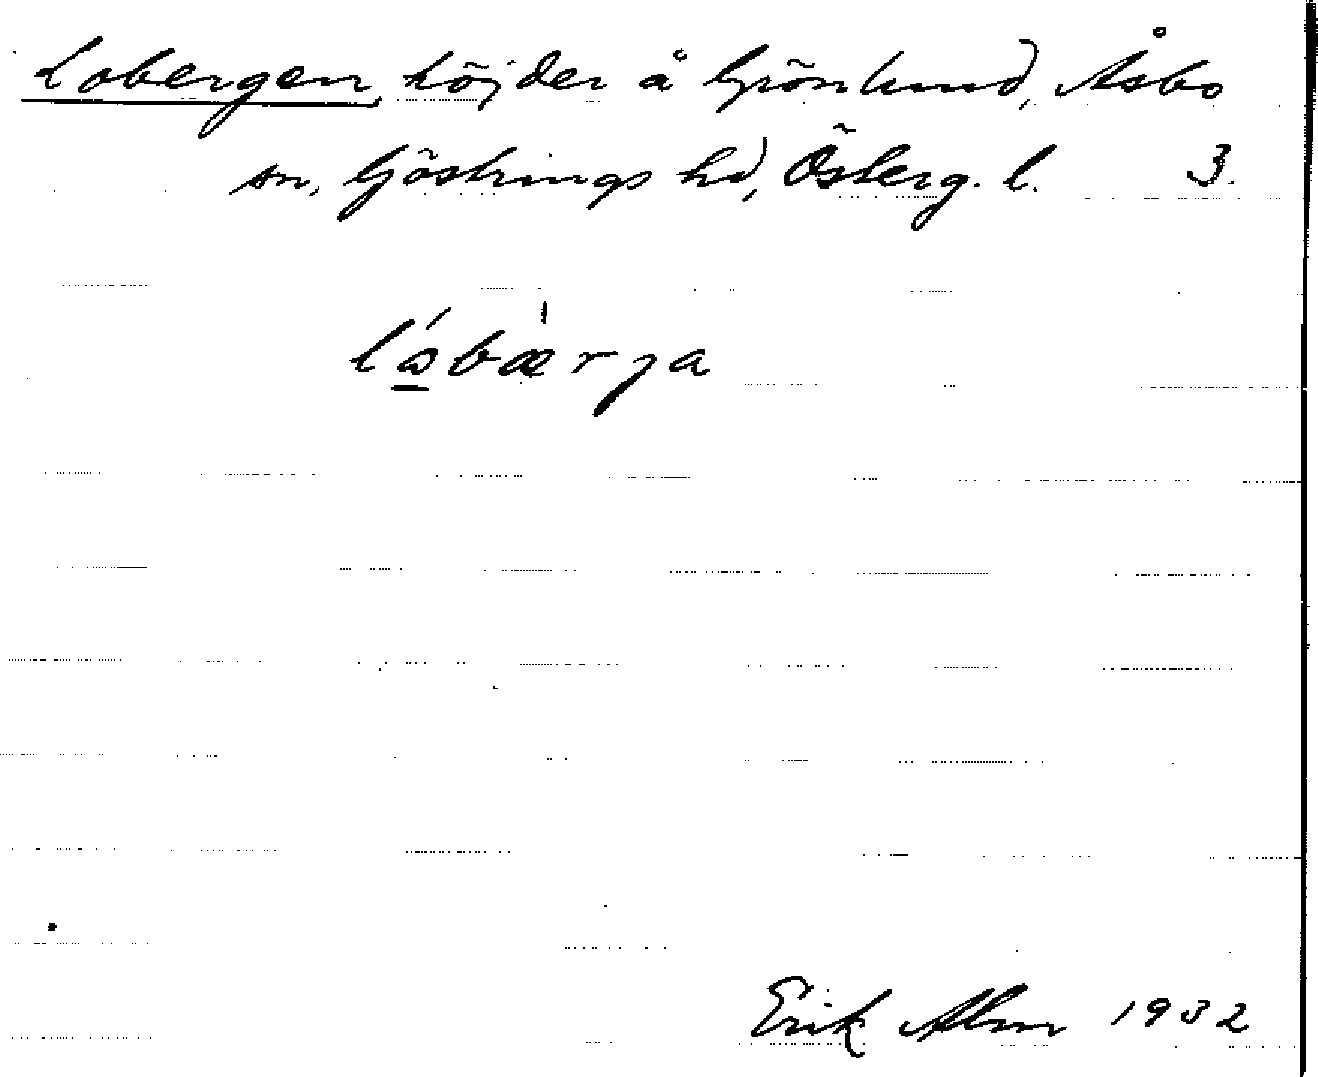 Lobergen, höjder å Grönlund, Åsbo
sn, Göstrings hd, Österg. l. 3.
lóbærja
Erik Alm 1932